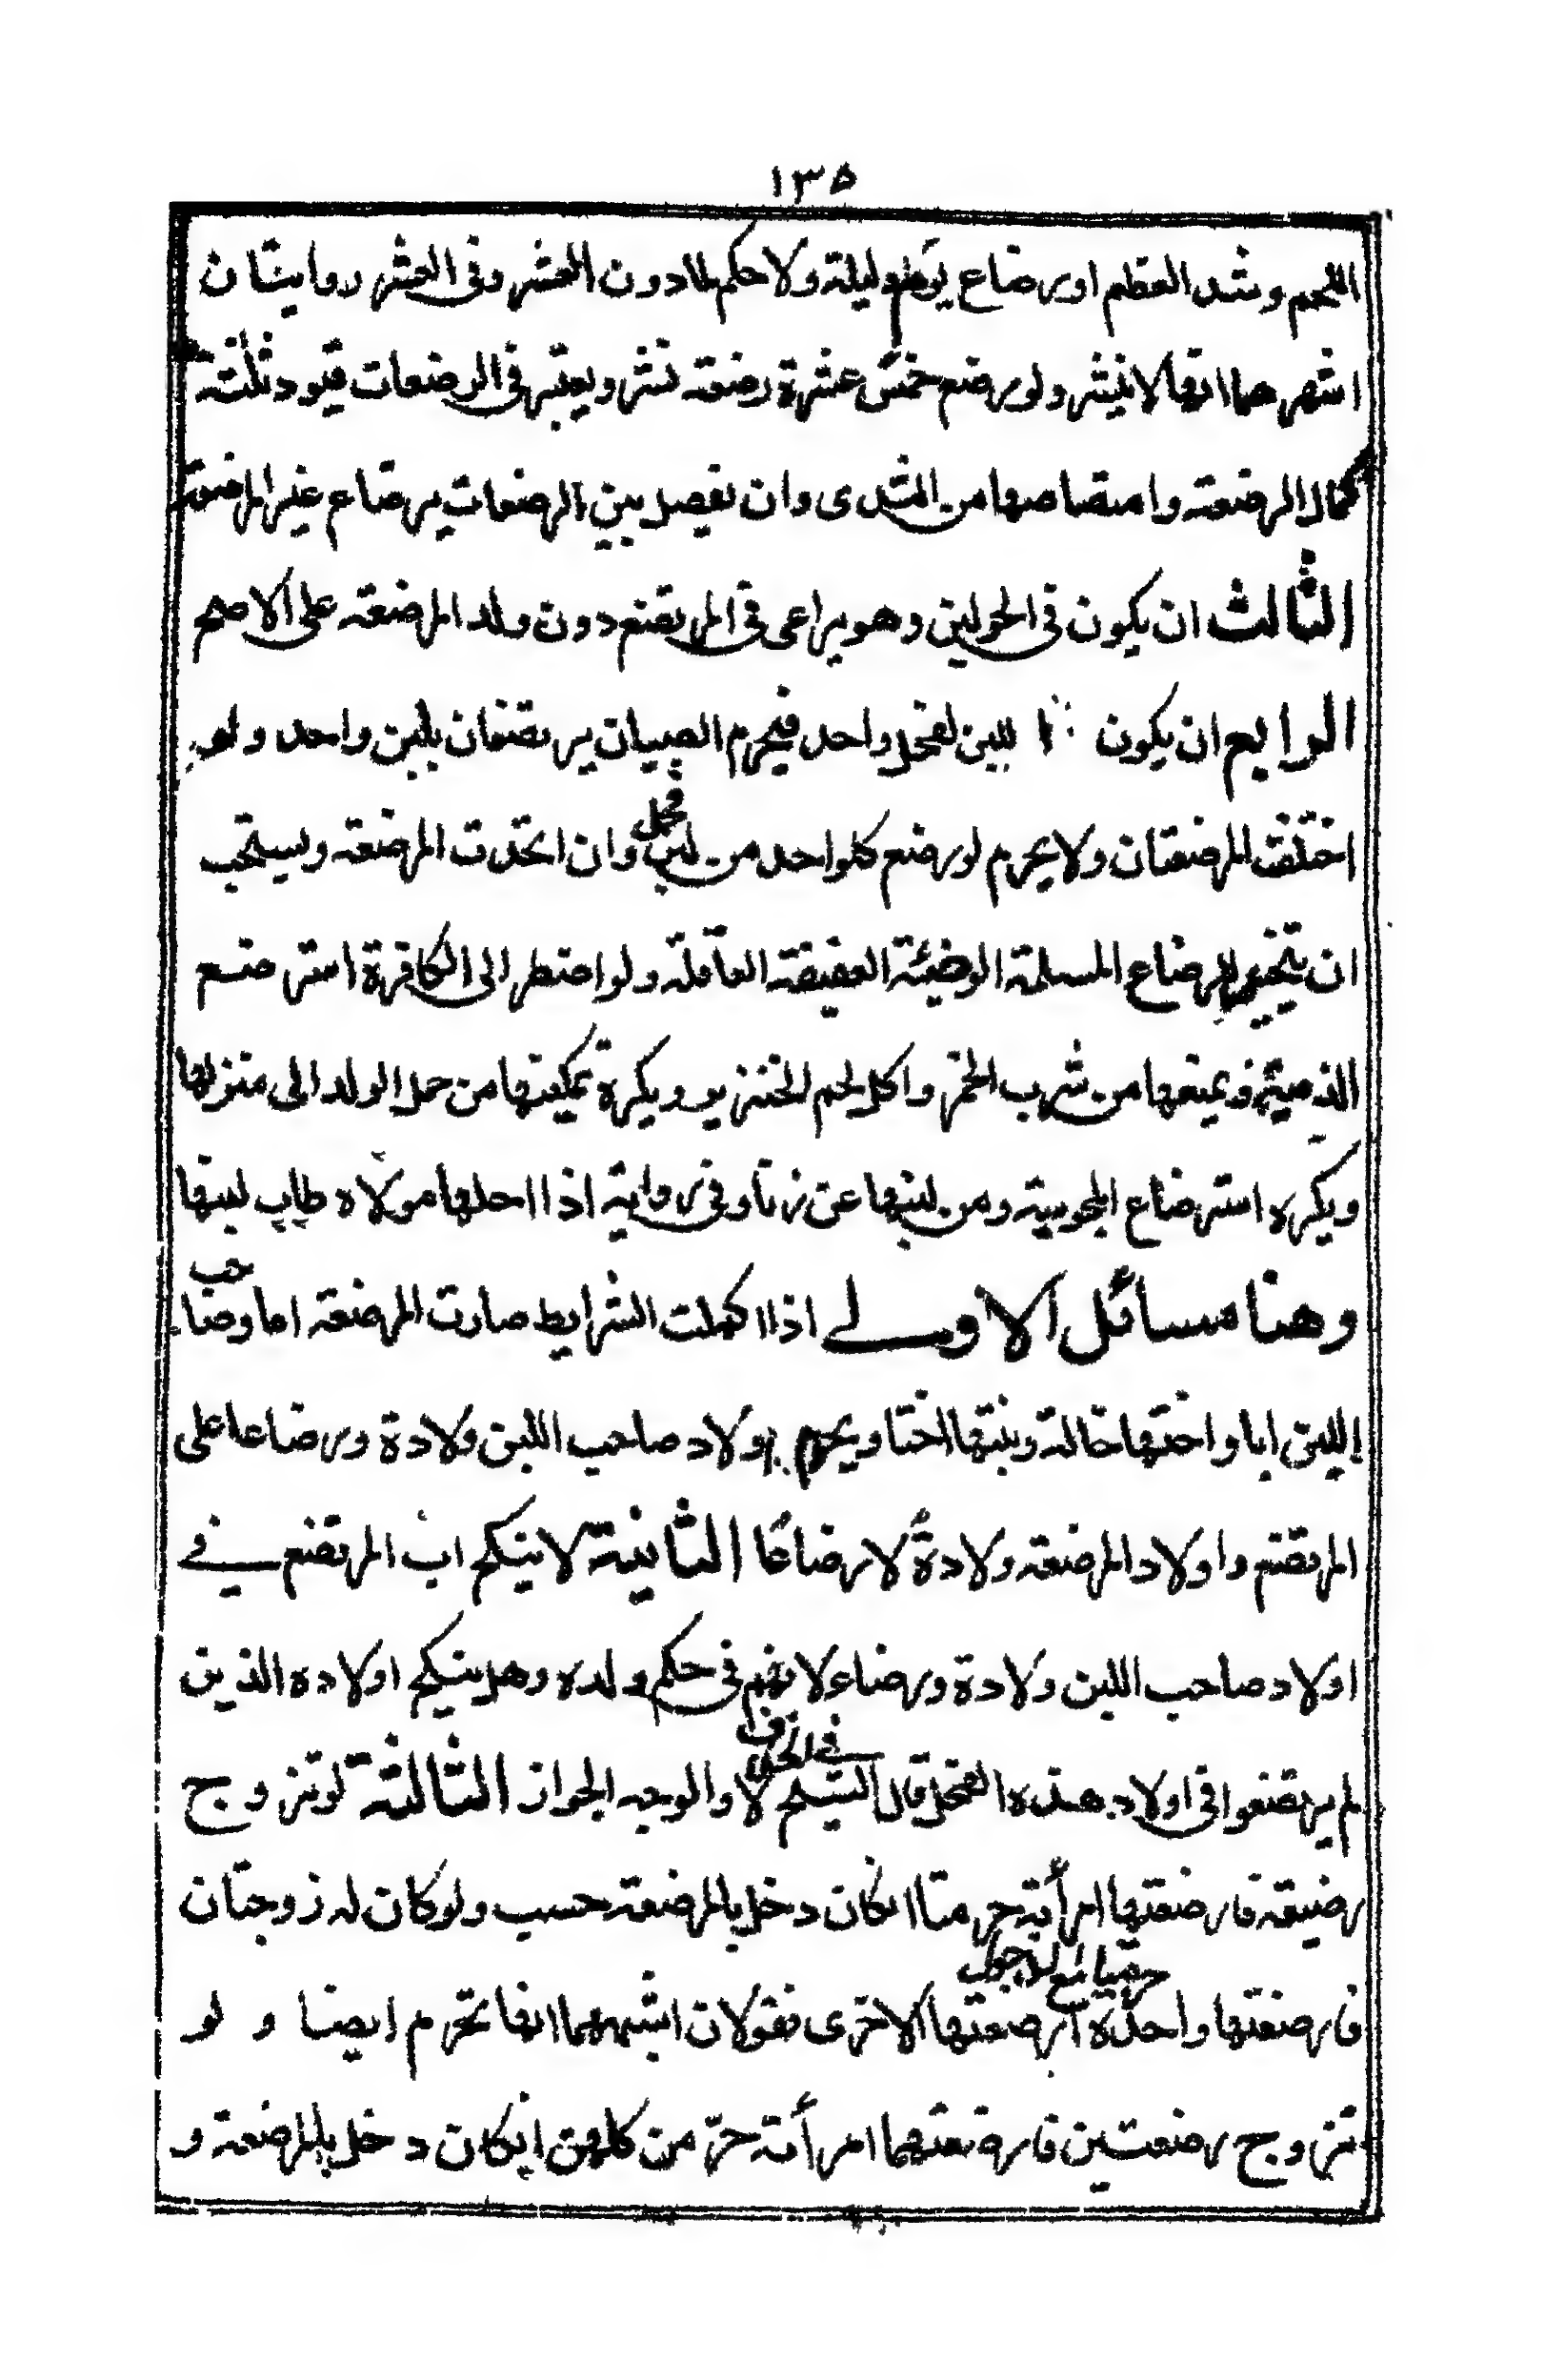 ١٣٥
اللحم وشد العظم او رضاع يوم وليلة ولا حكم لما دون العشر وفى العشر روايتان
اشهرهما انها لا ينشر ولو رضع خمس عشرة رضعة نشر ويعتبر فى الرضعات قيود ثلثة
كمال الرضعة وامتصاصها من الثدى وان يفصل بين الرضعات برضاع غير المرضعة
الثالث ان يكون فى الحولين وهو يراعى فى المرتضع دون ولد المرضعة على الاصح
الرابع ان يكون اللبن لفحل واحد فيحرم الصبيان يرتضعان بلبن واحد ولو
اختلفت المرضعتان ولا يحرم لو رضع كلواحد من لبن فحل وان اتحدت المرضعة ويستحب
ان يتخير للرضاع المسلمة الوضيئة العفيفة العاقلة ولو اضطر الى الكافرة استرضع
الذمية ويمنعها من شرب الخمر واكل لحم الخنزير ويكره تمكينها من حمل الولد الى منزلها
ويكره استرضاع المجوسية ومن لبنها عن زنا وفى رواية اذا احلها مولاه طاب لبنها
وهنا مسائل الاولے اذا اكملت الشرايط صارت المرضعة اما وصاحب
اللبن ابا واختها خالة وبنتها اختا ويحرم اولاد صاحب اللبن ولادة ورضاعا على
المرتضع واولاد المرضعة ولادةً لا رضاعًا الثانية لا ينكح اب المرتضع فے
اولاد صاحب اللبن ولادة ورضاعا لانهم فى حكم ولده وهل ينكح اولاده الذين
لم يرتضعوا فى اولاد هذه الفحل قال الشيخ فے الخلاف لا والوجه الجواز الثالثة لو تزوج
رضيعة فارضعتها امرأته حرمتا انكان دخل بالمرضعة حسب ولو كان له زوجتان
فارضعتها واحدة حرمتا مع الدخول ارضعتها الاخرى فقولان اشبههما انها تحرم ايضا ولو
تزوج رضعتين فارضعتهما امرأته حرّ من كلهن انكان دخل بالمرضعة و